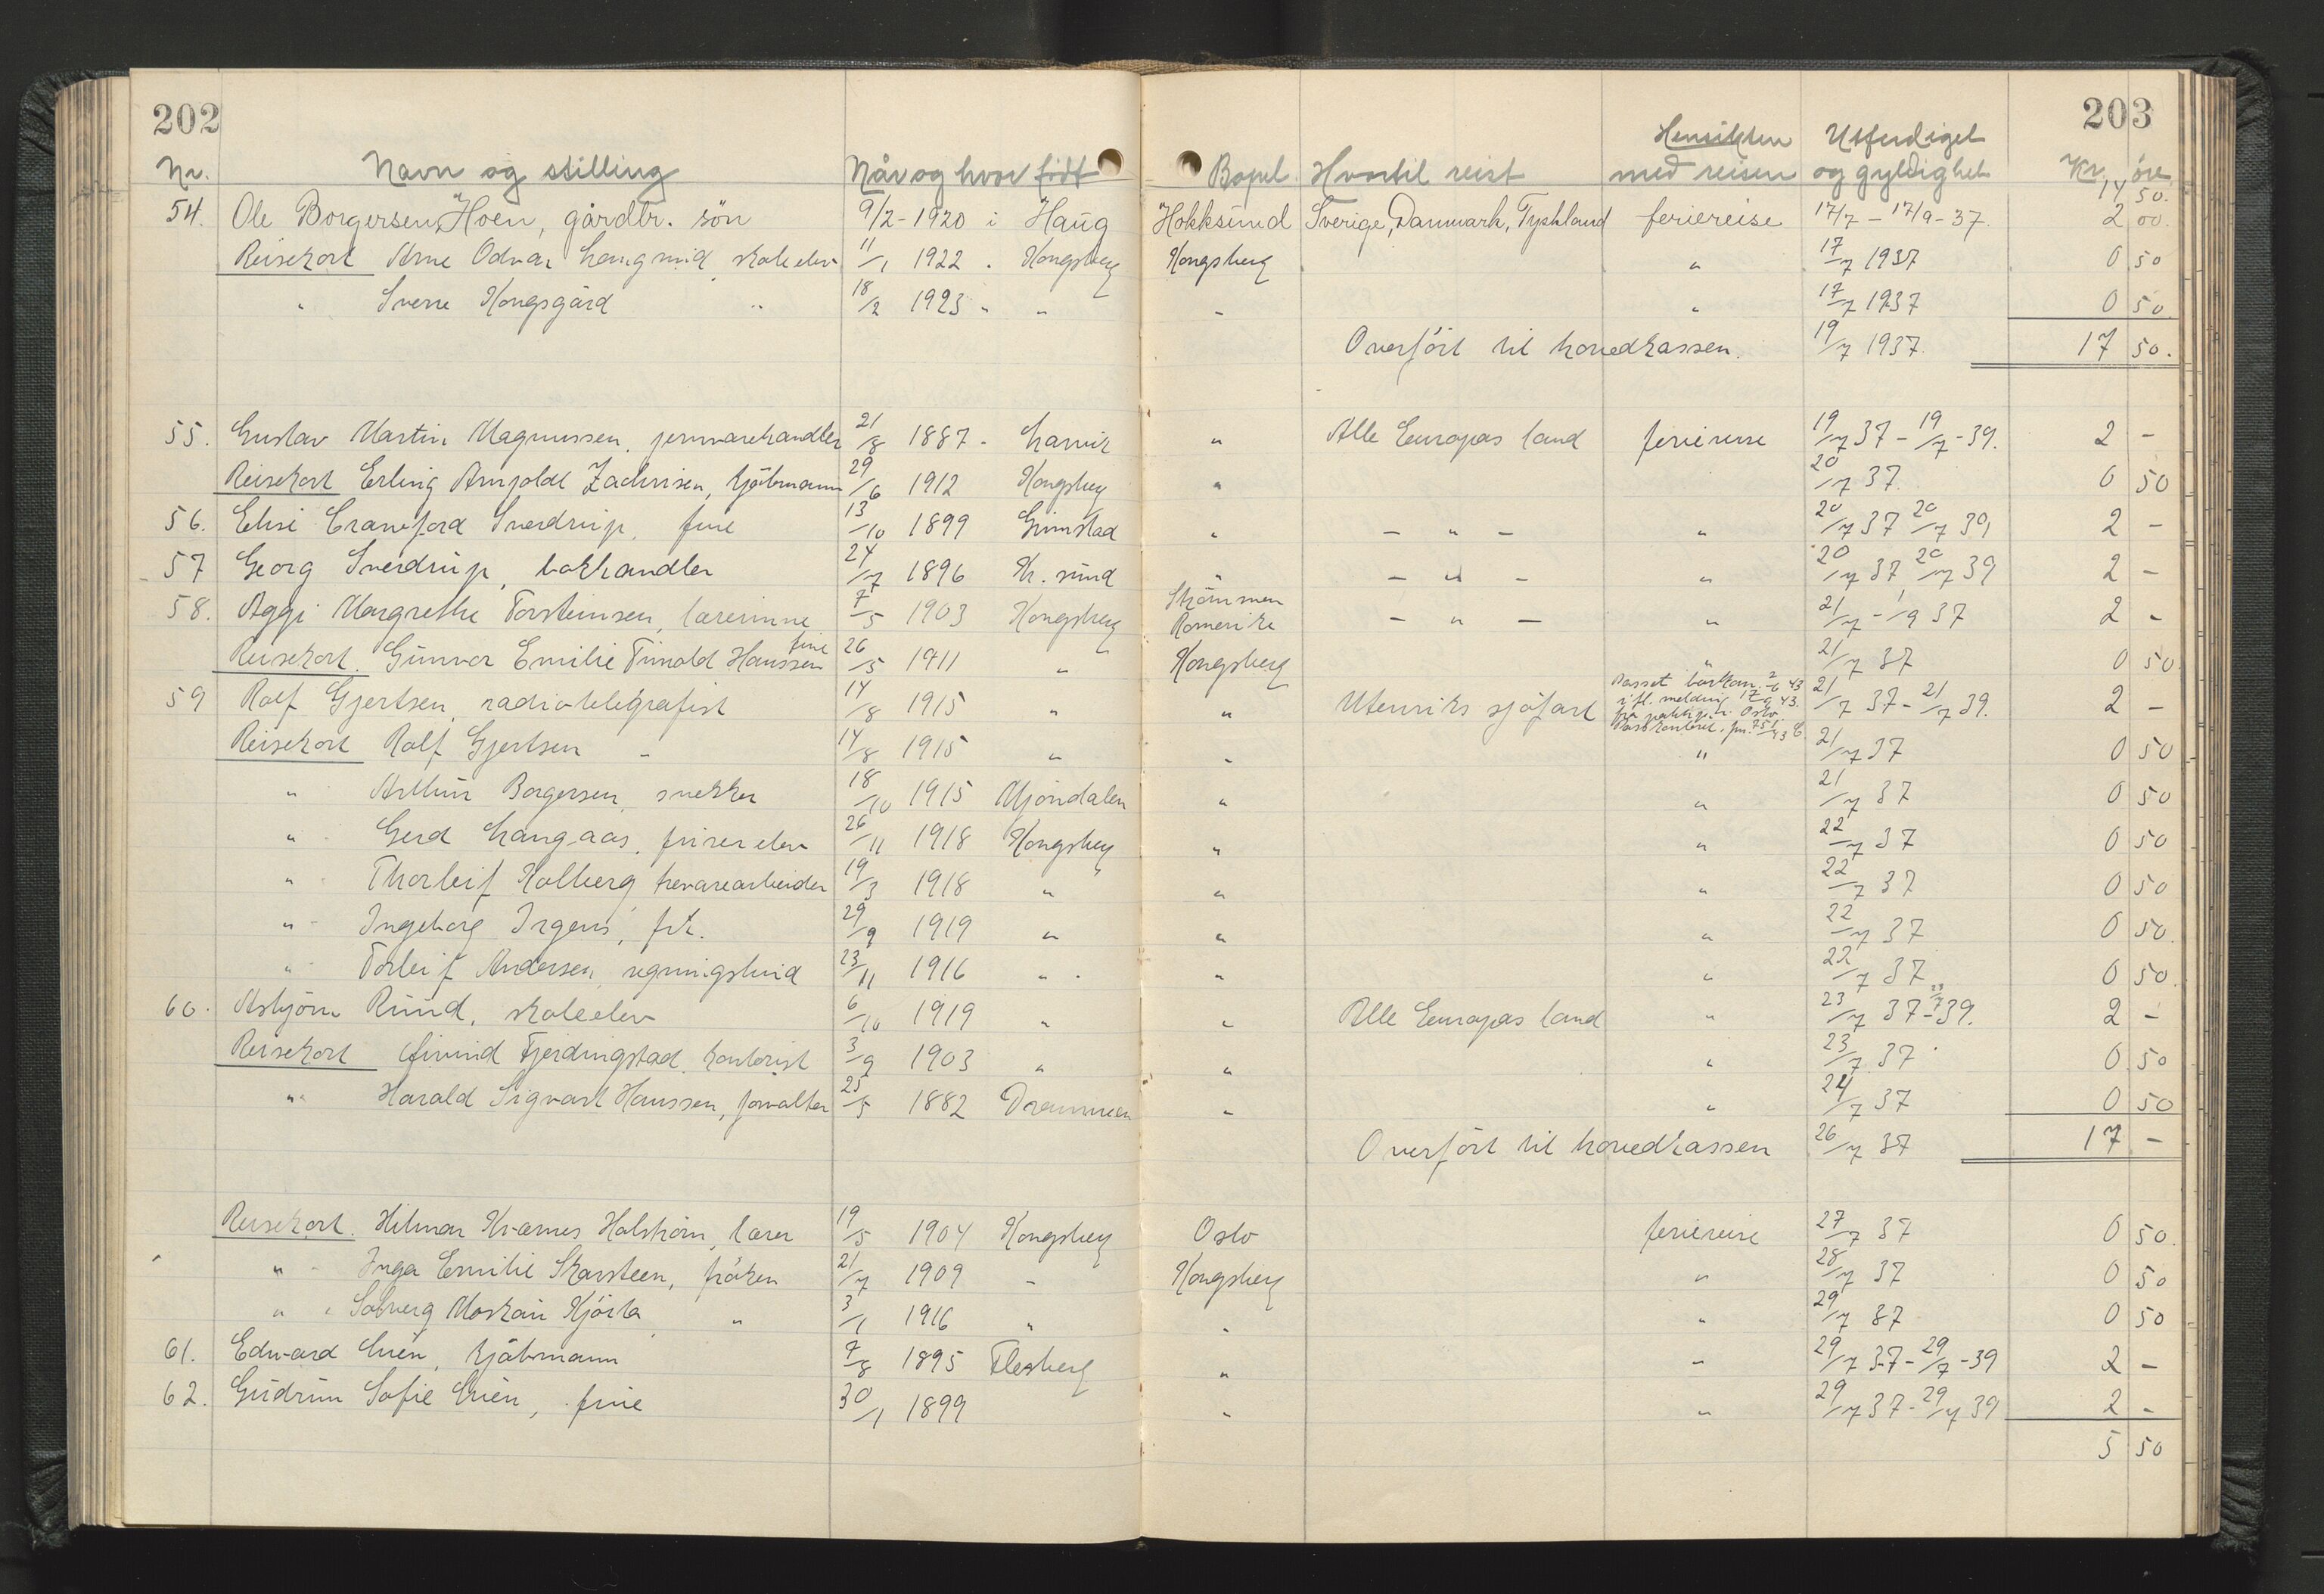 202
203
Nr. Navn og stilling Når og hvor födt Bopel Hvortil reist Hensikten med reisen Utferdiget og gyldighet Kr. öre
14 50.
54. Ole Borgersen Hoen, gårdbr. sön 9/2-1920 i Haug Hokksund Sverige, Danmark, Tyskland feriereise 17/7 - 17/9 - 37. 2 00.
Reisekort Arne Odvar skoleelev 11/1 1922 . Kongsberg Kongsberg " 17/7 1937 0 50
" Sverre Kongsgård " 18/2 1923 " " " " 17/7 1937 0 50.
Overfört til hovedkassen. 19/7 1937. 17 50.
55. Gustav Martin Magnussen, jernvarehandler 21/8 1887 - Larvik " Alle Europas land feriereise 19/7 37 - 19/7 - 39. 2 -
Reisekort Erling Arnoldt Zachrisen, kjöbmann 29/6 1912 Kongsberg " 20/7 37. 0 50
56. Elisi Crawford Sverdrup, frue 13/10 1899 Grimstad " - " - " 20/7 37 20/7 39 2 -
57 Georg Sverdrup, bokhandler 24/7 1896 Kr. sund " - " - " 20/7 37 20/7 39 2 -
58. Aggi Margrethe Torsteinsen, lærerinne 7/5 1903 Kongsberg Strömmen Romerike - " - " 21/7 - 1/9 37 2 -
Reisekort. Gunvor Emilie Hanssen frue 26/5 1911 " Kongsberg " 21/7 37 0 50.
59 Rolf Gjertsen, radiotelegrafist 14/8 1915 " " Utenriks sjöfart Passet bortkom. 2/6 43 ifl. melding 17/9 43. fra Oslo Passkontoret, jnr. 751/43 21/7 37 - 21/7 39. 2 -
Reisekort Rolf Gjertsen - 14/8 1915 " " " 21/7 37 0 50
" Arthur Borgersen, snekker 18/10 1915 Mjöndalen " " 21/7 37 0 50
" Gerd Langaas, friserelev 26/11 1918 Kongsberg " " 22/7 37 0 50
" Thorleif Kolberg, trevarearbeider 19/3 1918 " " " 22/7 37 0 50
" Ingeborg Irgens, frk. 29/9 1919 " " " 22/7 37 0 50.
" Torleif Andersen, 23/11 1916 " " " 22/7 37 0 50.
60. Asbjörn Ruud, skoleelev 6/10 1919 " " Alle Europas land " 23/7 37 - 23/7 39. 2 -
Reisekort Eivind Fjerdingstad, kontorist 3/9 1903 " " " 23/7 37 0 50
" Harald Sigvart Hanssen, forvalter 25/5 1882 Drammen " " 24/7 37 0 50
Overfört til hovedkassen 26/7 37 17 -
Reisekort. Hilmar Holström, lærer 19/5 1904 Kongsberg Oslo feriereise 27/7 37 0 50.
" Inga Emilie Skarsteen, fröken 21/7 1909 - Kongsberg " 28/7 37 0 50
" Solverg Kjörla " 3/1 1916 " " " 29/7 37 0 50
61. Edvard Lien, kjöbmann 7/8 1895 Flesberg " " 29/7 37 - 29/7 - 39 2 -
62. Gudrun Sofie Lien, frue 30/1 1899 " " 29/7 37 - 29/7 39 2 -
5 50